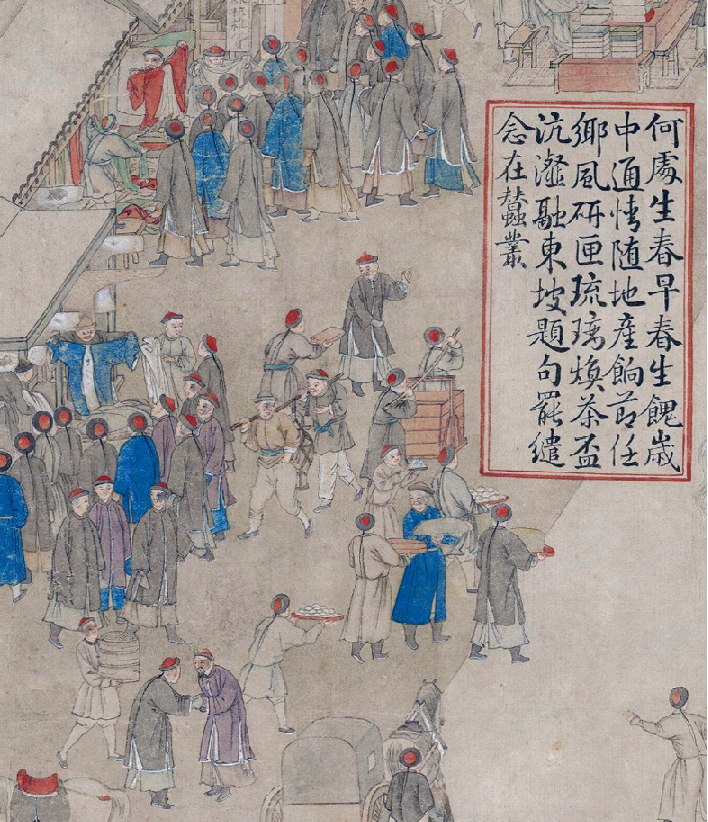 何處生春早春生餽歲
中通情随地產餉節任
鄉風研匣琉璃煥茶盃
沆瀣融東坡題句罷繾
念在蠶叢